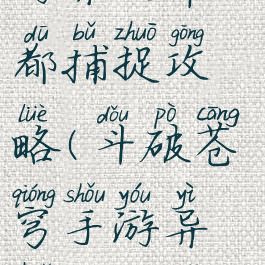 dū bǔ zhuō gōng
都捕捉攻
lüè dǒu pò cāng
略(斗破苍
qióng shǒu yóu yì
穹手游异